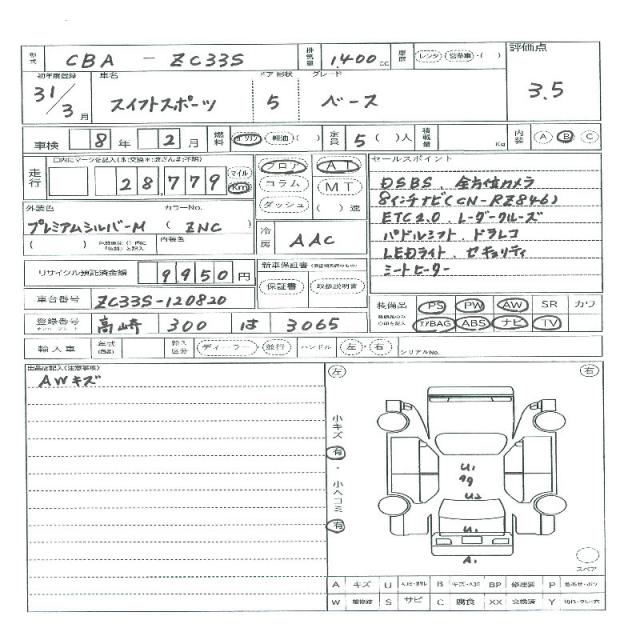 型式 CBA - ZC33S 排気量 1400 cc 車歴 レンタ・営業車・( ) 評価点
初年度登録 車名 ドア形状 グレード
31/3月 スイフトスポーツ 5 ベース 3.5
車検 8年 2月 燃料 ガソリン・軽油・( ) 定員 5( )人 積載量 Kg 内装 A B C
走行 28,779 マイル Km フロア コラム ダッシュ AT MT ( )速 セールスポイント
DSBS. 全方位カメラ
8インチナビ(CN-RZ846)
ETC2.0. レーダークルーズ
パドルシフト. ドラレコ
LEDライト. セキュリティ
シートヒーター
外装色 カラーNo.
プレミアムシルバーM (ZNC)
( ) 内装色 冷房 AAC
リサイクル預託済金額 9950円 新車保証書
保証書 取扱説明書
車台番号 ZC33S-120820 装備品 PS PW AW SR カワ
登録番号 高崎 300 は 3065 I/BAG ABS ナビ TV
輸入車 年式 輸入区分 ディーラー・並行 ハンドル 左・右 シリアルNo.
出品店記入(注意事項)
AWキズ
左 右
小キズ 有・小ヘコミ 有
U1
99
U2
U1
A1
スペア
A キズ U B キズ・ヘコミ BP 修理装 P
W S サビ C 腐食 XX 交換済 Y